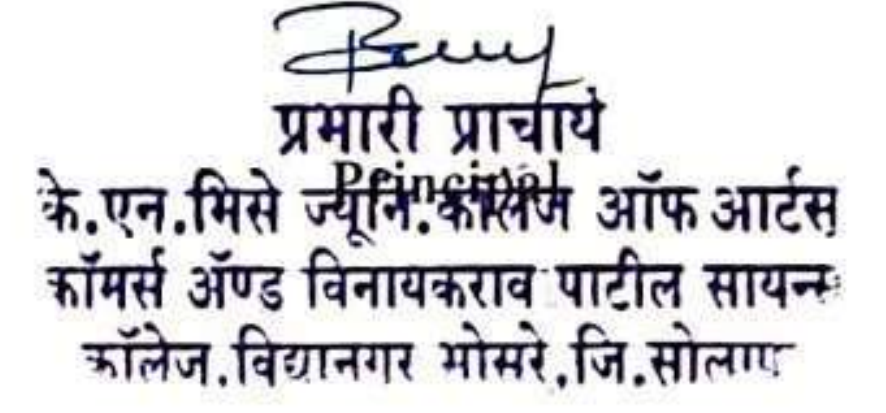 प्रभारी प्राचार्य
Principal
के.एन.भिसे ज्यूनि.कॉलेज ऑफ आर्टस्
कॉमर्स ॲण्ड विनायकराव पाटील सायन्स
कॉलेज.विद्यानगर भोसरे.जि.सोलापूर